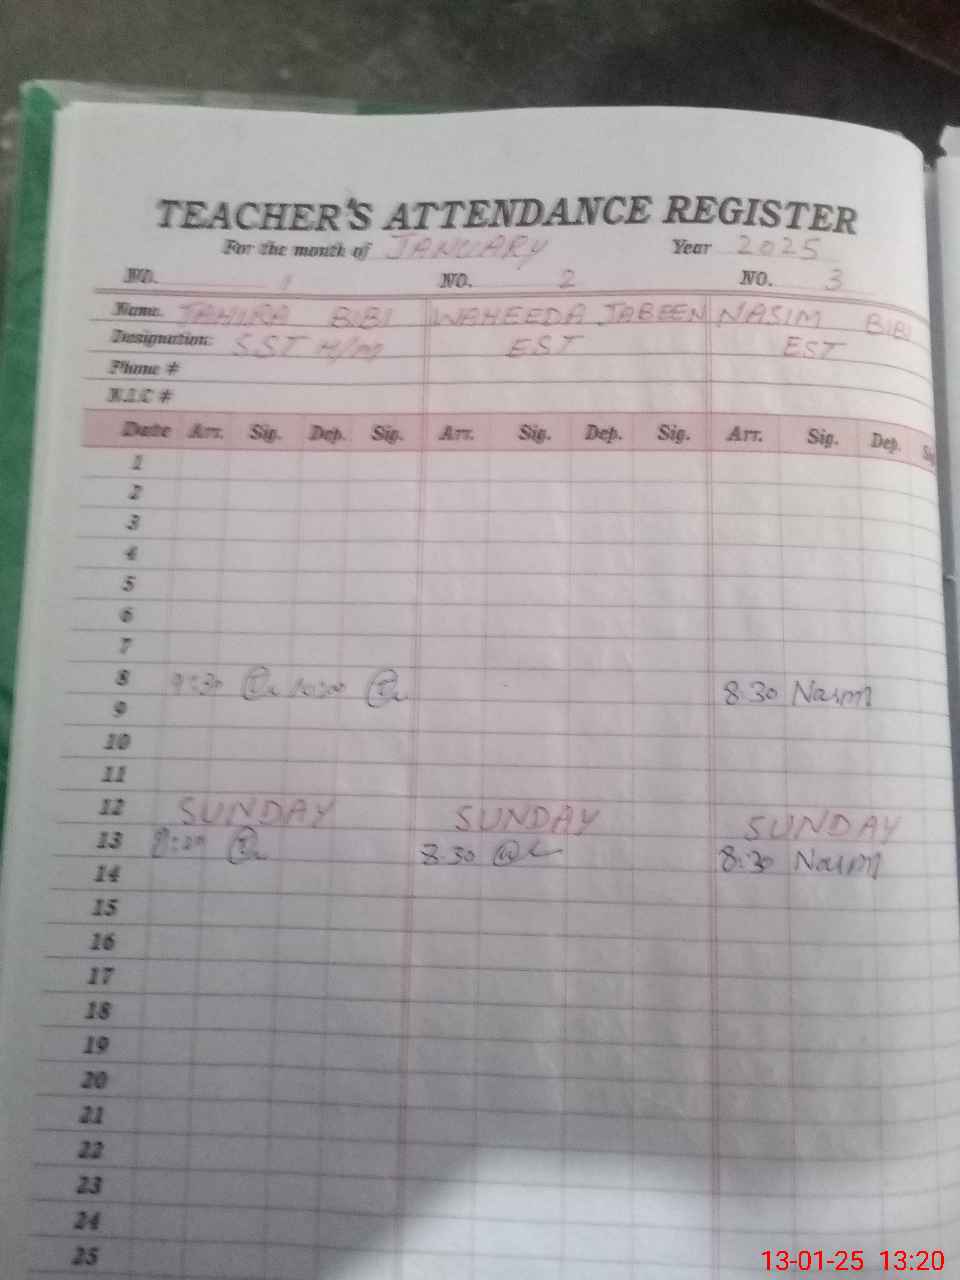 TEACHER'S ATTENDANCE REGISTER
For the month of JANUARY Year 2025
NO. 1 NO. 2 NO. 3
Name. TAHIRA BIBI WAHEEDA JABEEN NASIM BIBI
Designation: SST H/M EST EST
Phone #
N.I.C #
Date Arr. Sig. Dep. Sig. Arr. Sig. Dep. Sig. Arr. Sig. Dep.
1
2
3
4
5
6
7
8 8:30 Nasim
9
10
11
12 SUNDAY SUNDAY SUNDAY
13 8:30 8:30 Nasim
14
15
16
17
18
19
20
21
22
23
24
25
13-01-25 13:20